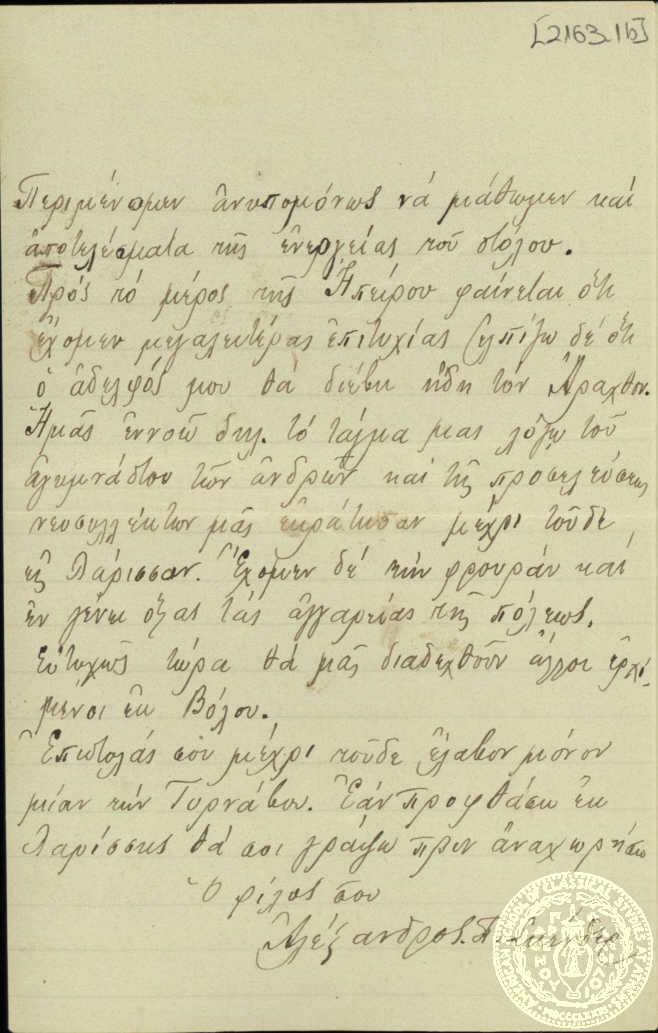 [2163.1b]
Περιμένομεν ἀνυπομόνως νά μάθωμεν καί
ἀποτελέσματα τῆς ἐνεργείας τοῦ στόλου.
Πρός τό μέρος τῆς Ἠπείρου φαίνεται ὅτι
ἔχομεν μεγαλειτέρας ἐπιτυχίας ἐλπίζω δέ ὅτι
ὁ ἀδελφός μου θά διέβη ἤδη τόν Ἄραχθον.
Ἡμᾶς ἐννοῶ δηλ. τό τάγμα μας λόγῳ τοῦ
ἀγυμνάστου τῶν ἀνδρῶν καί τῆς προσελεύσεως
νεοσυλλέκτων μᾶς ἐκράτησαν μέχρι τοῦδε
εἰς Λάρισσαν. Ἔχομεν δέ τήν φρουράν καί
ἐν γένει ὅλας τάς ἀγγαρείας τῆς πόλεως.
Εὐτυχῶς τώρα θά μᾶς διαδεχθοῦν ἄλλοι ἐρχό-
μενοι ἐκ Βόλου.
Ἐπιστολάς σου μέχρι τοῦδε ἔλαβον μόνον
μίαν τήν Τυρνάβου. Ἐάν προφθάσω ἐκ
Λαρίσσης θά σοι γράψω πρίν ἀναχωρήσω
Ὁ φίλος σου
Ἀλέξανδρος. Π.
AMERICAN SCHOOL OF CLASSICAL STUDIES AT ATHENS
MDCCCLXXXI